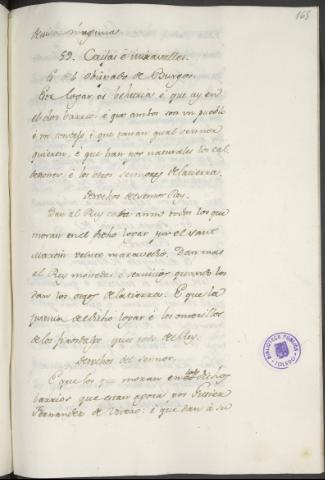 165
59. Cassai é miravalles.
É del obispado de Burgos.
Este logar es behetria é que ay en
el dos barrios, é que ambos son un pueblo
é un concejo, é que toman qual sennor
quieren, é que han por naturales los cal
denones, é los otros sennores de la tierra.
Derechos del sennor Rey.
Dan al Rey cada anno todos los que
moran en el dicho logar por el sant
Martin veinte maravedis. Dan mas
al Rey monedas é servicios quando los
dan los otros de la tierra. É que la
justicia del dicho logar é los omecillos
de los que son del Rey.
Derechos del sennor.
É que los que moran en los dichos
barrios que estan agora por Garcia
Fernandez de : é que dan á su
BIBLIOTECA PUBLICA
TOLEDO